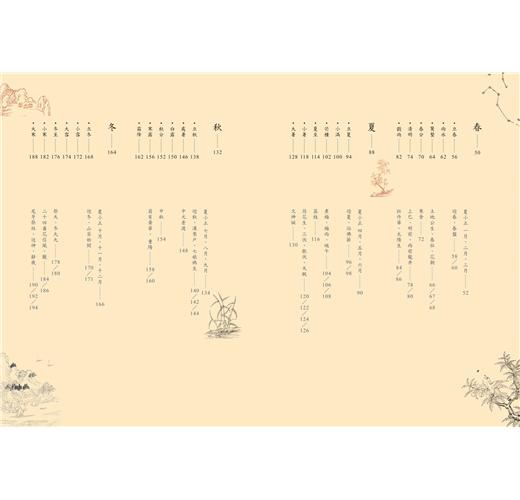 春——50
•立春——56
•雨水——62
•驚蟄——64
•春分——70
•清明——74
•穀雨——82
夏小正 一月・二月・三月——52
迎春・春盤——58/60
土地公生・春社・花朝——66/67/68
寒食——72
上巳・明前・雨前龍井——74/80
太陽生——84/86
夏——88
•立夏——94
•小滿——100
•芒種——102
•夏至——114
•小暑——118
•大暑——128
夏小正 四月・五月・六月——90
迎夏・浴佛節——96/98
煮梅・梅雨・端午——104/106/108
荔枝——116
荷花生・三伏・——120/122/124/126
——130
秋——132
•立秋——138
•處暑——146
•白露——150
•秋分——152
•寒露——156
•霜降——162
夏小正 七月・八月・九月——134
迎秋・七娘媽生——140/142/144
中元普渡——148
中秋——154
菊有黃華・重陽——159/160
冬——164
•立冬——168
•小雪——172
•大雪——174
•冬至——176
•小寒——182
•大寒——188
夏小正 十月・十一月・十二月——166
迎冬・山茶始開——170/171
冬九九——178/180
二十四番花信風・臘——184/186
尾牙祭祖・送神・辭歲——190/192/194